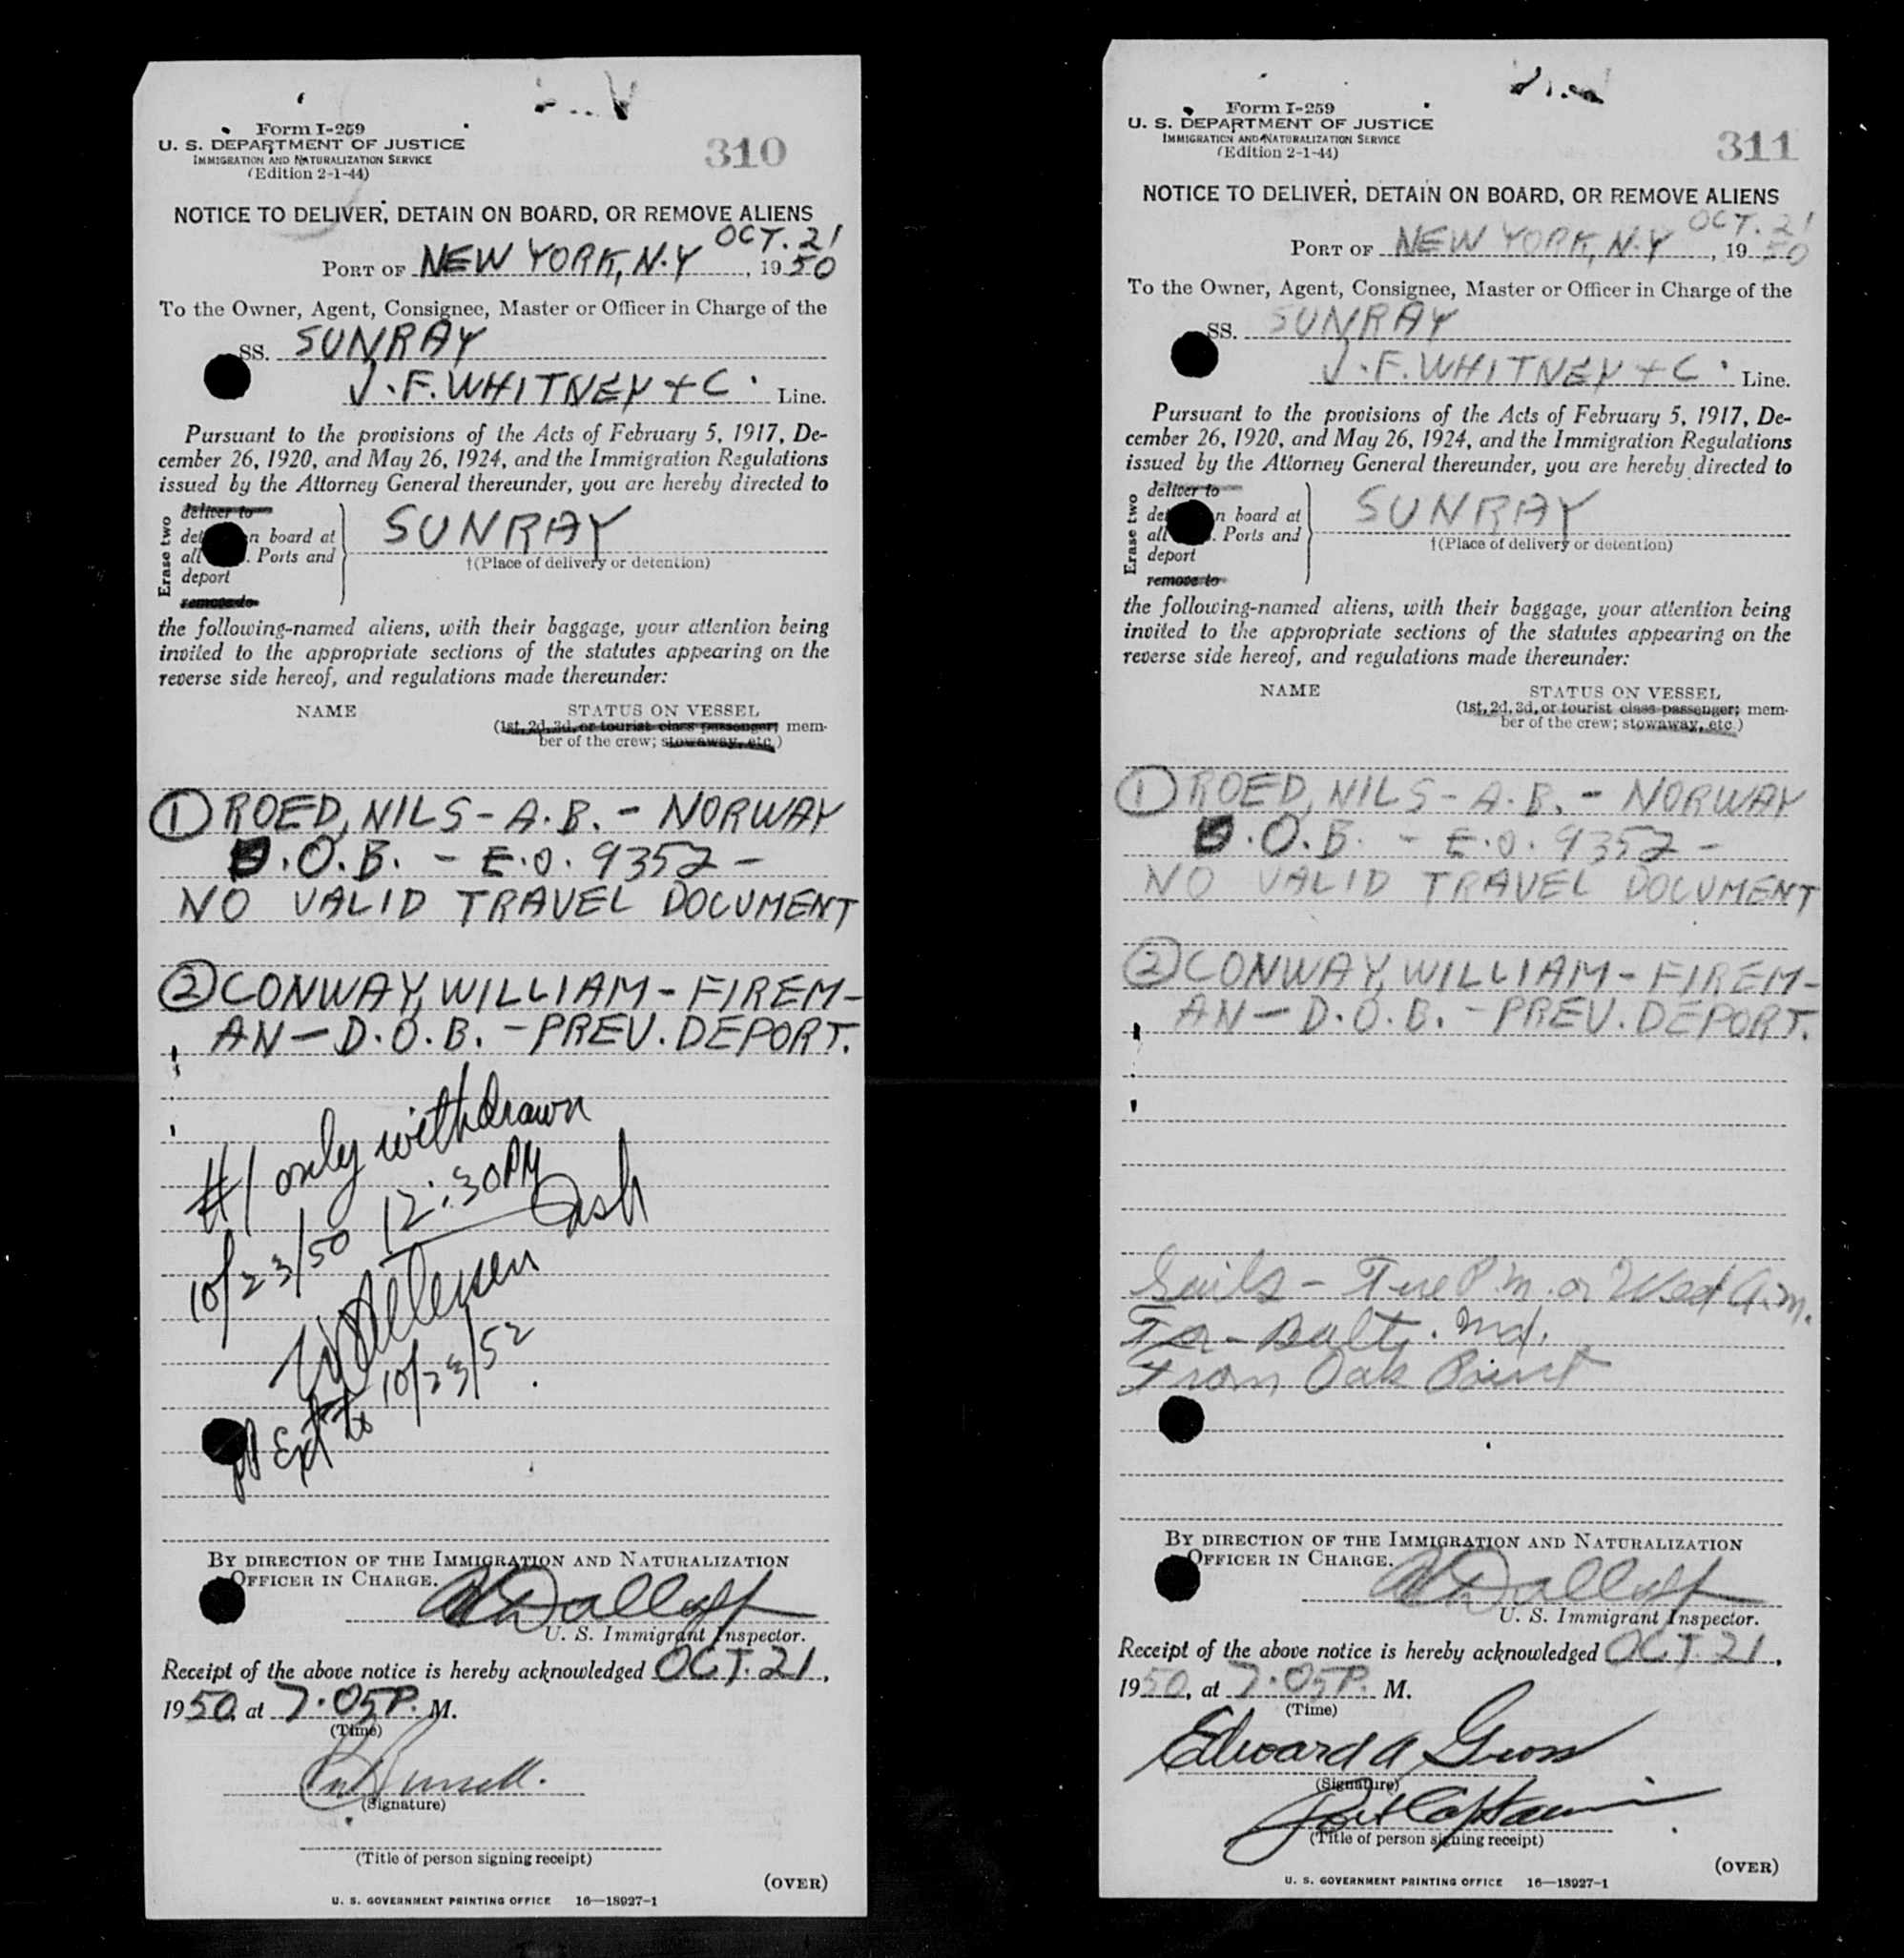 Form I-259
U. S. DEPARTMENT OF JUSTICE
IMMIGRATION AND NATURALIZATION SERVICE
(Edition 2-1-44)
310
NOTICE TO DELIVER, DETAIN ON BOARD, OR REMOVE ALIENS
OCT. 21
PORT OF NEW YORK, N.Y , 1950
To the Owner, Agent, Consignee, Master or Officer in Charge of the
SS. SUNRAY
J.F. WHITNEY + C. Line.
Pursuant to the provisions of the Acts of February 5, 1917, De-
cember 26, 1920, and May 26, 1924, and the Immigration Regulations
issued by the Attorney General thereunder, you are hereby directed to
Erase two
deliver to
det n board at
all . Ports and
deport
remove to
SUNRAY
†(Place of delivery or detention)
the following-named aliens, with their baggage, your attention being
invited to the appropriate sections of the statutes appearing on the
reverse side hereof, and regulations made thereunder:
NAME STATUS ON VESSEL
(1st, 2d, 3d, or tourist class passenger; mem-
ber of the crew; stowaway, etc.)
① ROED, NILS - A.B. - NORWAY
D.O.B. - E.O. 9352 -
NO VALID TRAVEL DOCUMENT
② CONWAY, WILLIAM - FIREM-
AN - D.O.B. - PREV. DEPORT.
#1 only withdrawn
10/23/50 12:30PM
Ext to 10/23/52
BY DIRECTION OF THE IMMIGRATION AND NATURALIZATION
OFFICER IN CHARGE.
U. S. Immigrant Inspector.
Receipt of the above notice is hereby acknowledged OCT. 21,
1950, at 7:05 P. M.
(Time)
(Signature)
(Title of person signing receipt)
(OVER)
U. S. GOVERNMENT PRINTING OFFICE 16—18927-1
Form I-259
U. S. DEPARTMENT OF JUSTICE
IMMIGRATION AND NATURALIZATION SERVICE
(Edition 2-1-44)
311
NOTICE TO DELIVER, DETAIN ON BOARD, OR REMOVE ALIENS
OCT. 21
PORT OF NEW YORK, N.Y , 1950
To the Owner, Agent, Consignee, Master or Officer in Charge of the
SS. SUNRAY
J.F. WHITNEY + C. Line.
Pursuant to the provisions of the Acts of February 5, 1917, De-
cember 26, 1920, and May 26, 1924, and the Immigration Regulations
issued by the Attorney General thereunder, you are hereby directed to
Erase two
deliver to
de n board at
all . Ports and
deport
remove to
SUNRAY
†(Place of delivery or detention)
the following-named aliens, with their baggage, your attention being
invited to the appropriate sections of the statutes appearing on the
reverse side hereof, and regulations made thereunder:
NAME STATUS ON VESSEL
(1st, 2d, 3d, or tourist class passenger; mem-
ber of the crew; stowaway, etc.)
① ROED, NILS - A.B. - NORWAY
D.O.B. - E.O. 9352 -
NO VALID TRAVEL DOCUMENT
② CONWAY, WILLIAM - FIREM-
AN - D.O.B. - PREV. DEPORT.
Sails - Tue P.m. or Wed A.m.
For - Balt. Md.
From Oak Point
BY DIRECTION OF THE IMMIGRATION AND NATURALIZATION
OFFICER IN CHARGE.
U. S. Immigrant Inspector.
Receipt of the above notice is hereby acknowledged OCT. 21,
1950, at 7:05 P. M.
(Time)
Edward A
(Signature)
Port Captain
(Title of person signing receipt)
(OVER)
U. S. GOVERNMENT PRINTING OFFICE 16—18927-1